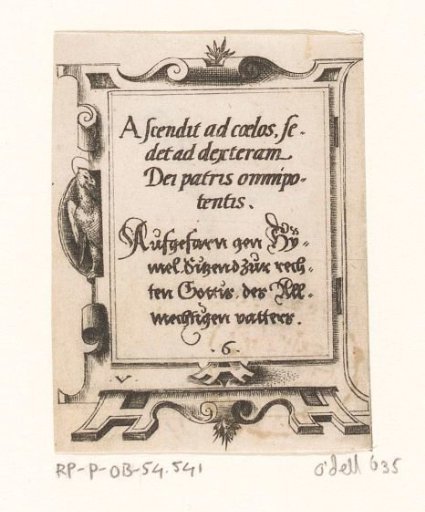 Aſcendit ad cœlos, ſe-
det ad dexteram
Dei patris omnipo-
tentis.
Aufgefarn gen Hÿ-
mel. Sitzend zur rech-
ten Gottis des All-
mechtigen vatters.
· 6 ·
V
RP-P-OB-54.541
O'dell 635